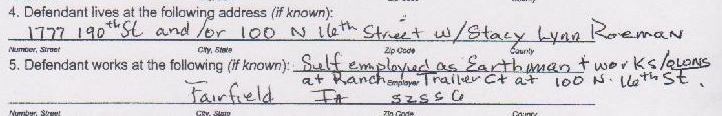 4. Defendant lives at the following address (if known):
1777 190th St and/or 100 N 16th Street w/Stacy Lynn Roeman
Number, Street City, State Zip Code County
5. Defendant works at the following (if known): Self employed as Earthman + works/owns
at Ranch Employer Trailer Ct at 100 N. 16th St.
Fairfield IA 52556
Number, Street City, State Zip Code County